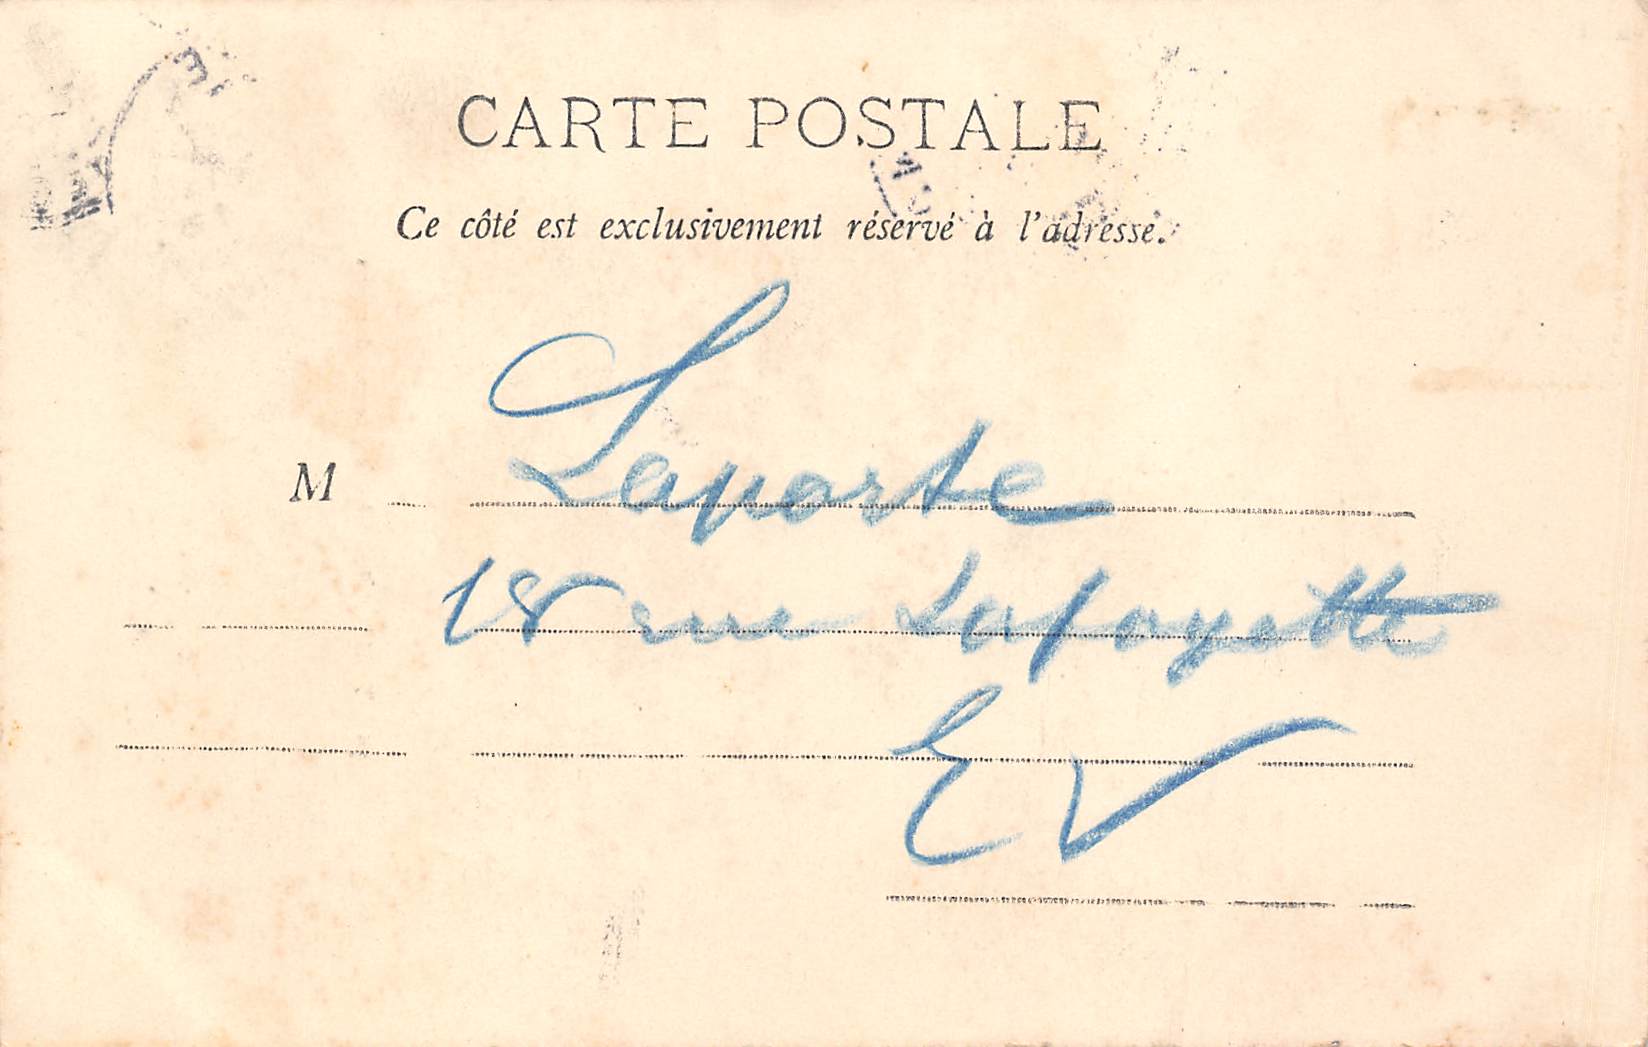 CARTE POSTALE
Ce côté est exclusivement réservé à l'adresse.
M Laporte
18 rue Lafayette
EV